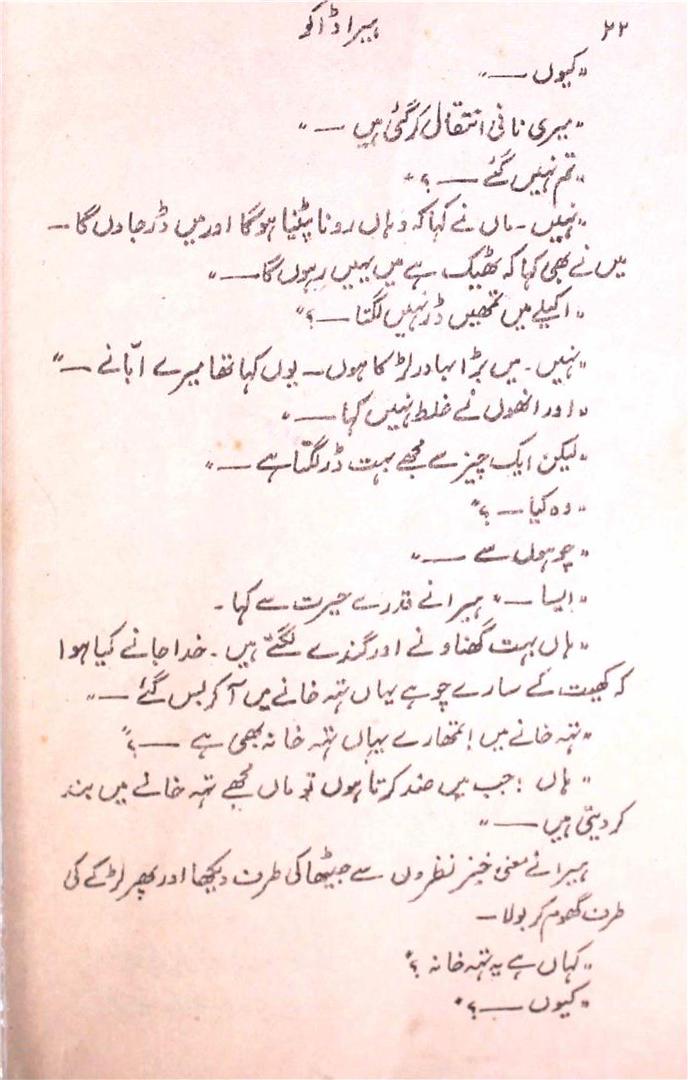 ۲۲ ہیرا ڈاکو
"کیوں ـــ"
"میری نانی انتقال کر گئی ہیں ـــ"
"تم نہیں گئے ـــ؟"
"نہیں۔ ماں نے کہا کہ وہاں رونا پیٹنا ہوگا اور میں ڈر جاوں گا۔
میں نے بھی کہا کہ ٹھیک ہے میں یہیں رہوں گا ـــ"
"اکیلے میں تمھیں ڈر نہیں لگتا ـــ؟"
"نہیں۔ میں بڑا بہادر لڑکا ہوں۔ یوں کہا تھا میرے ابّا نے ـــ"
"اور انھوں نے غلط نہیں کہا ـــ"
"لیکن ایک چیز سے مجھے بہت ڈر لگتا ہے ـــ"
"وہ کیا ـــ؟"
"چوہوں سے ـــ"
"ایسا ـــ" ہیرا نے قدرے حیرت سے کہا۔
"ہاں بہت گھناونے اور گندے لگتے ہیں۔ خدا جانے کیا ہوا
کہ کھیت کے سارے چوہے یہاں تہہ خانے میں آکر بس گئے ـــ"
"تہہ خانے میں! تمھارے یہاں تہہ خانہ بھی ہے ـــ؟"
"ہاں! جب میں ضد کرتا ہوں تو ماں مجھے تہہ خانے میں بند
کر دیتی ہیں ـــ"
ہیرا نے معنی خیز نظروں سے جیٹھا کی طرف دیکھا اور پھر لڑکے کی
طرف گھوم کر بولا۔
"کہاں ہے یہ تہہ خانہ؟"
"کیوں ـــ؟"